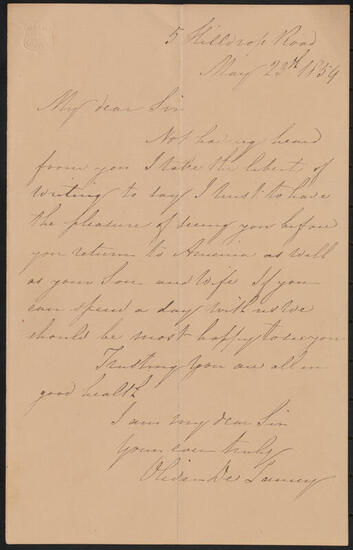 5 Hilldrop Road
May 23th 1859
My dear Sir
Not having heard
from you I take the libert of
writing to say I trust to have
the pleasure of seeing you before
you return to America as well
as your Son and wife If you
can spend a day with us We
should be most happy to see you
Trusting you are all in
good health
I am my dear Sir
yours ever truly
De